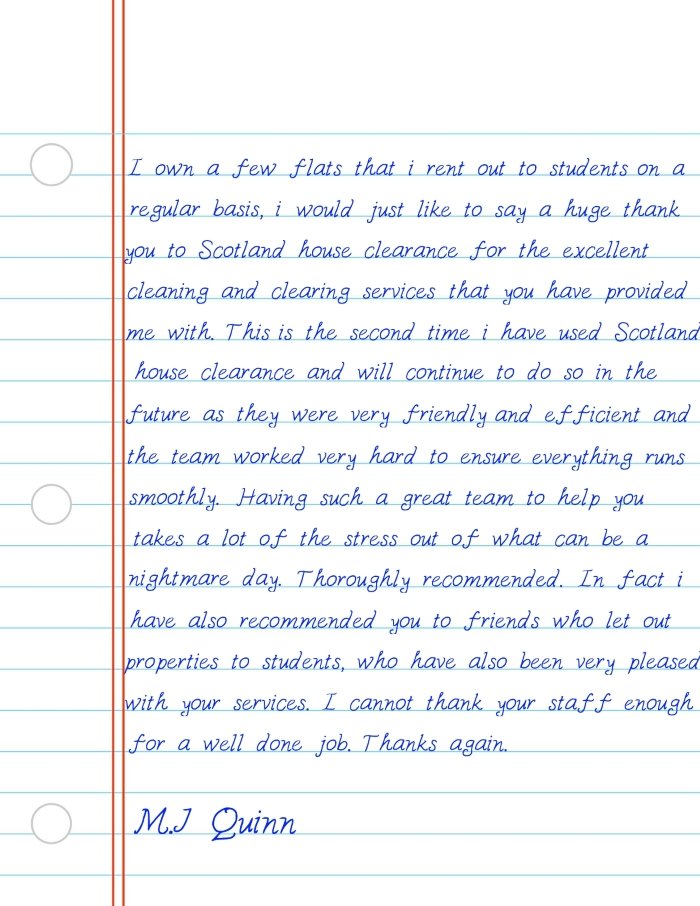 I own a few flats that i rent out to students on a
regular basis, i would just like to say a huge thank
you to Scotland house clearance for the excellent
cleaning and clearing services that you have provided
me with. This is the second time i have used Scotland
house clearance and will continue to do so in the
future as they were very friendly and efficient and
the team worked very hard to ensure everything runs
smoothly. Having such a great team to help you
takes a lot of the stress out of what can be a
nightmare day. Thoroughly recommended. In fact i
have also recommended you to friends who let out
properties to students, who have also been very pleased
with your services. I cannot thank your staff enough
for a well done job. Thanks again.
M.J Quinn